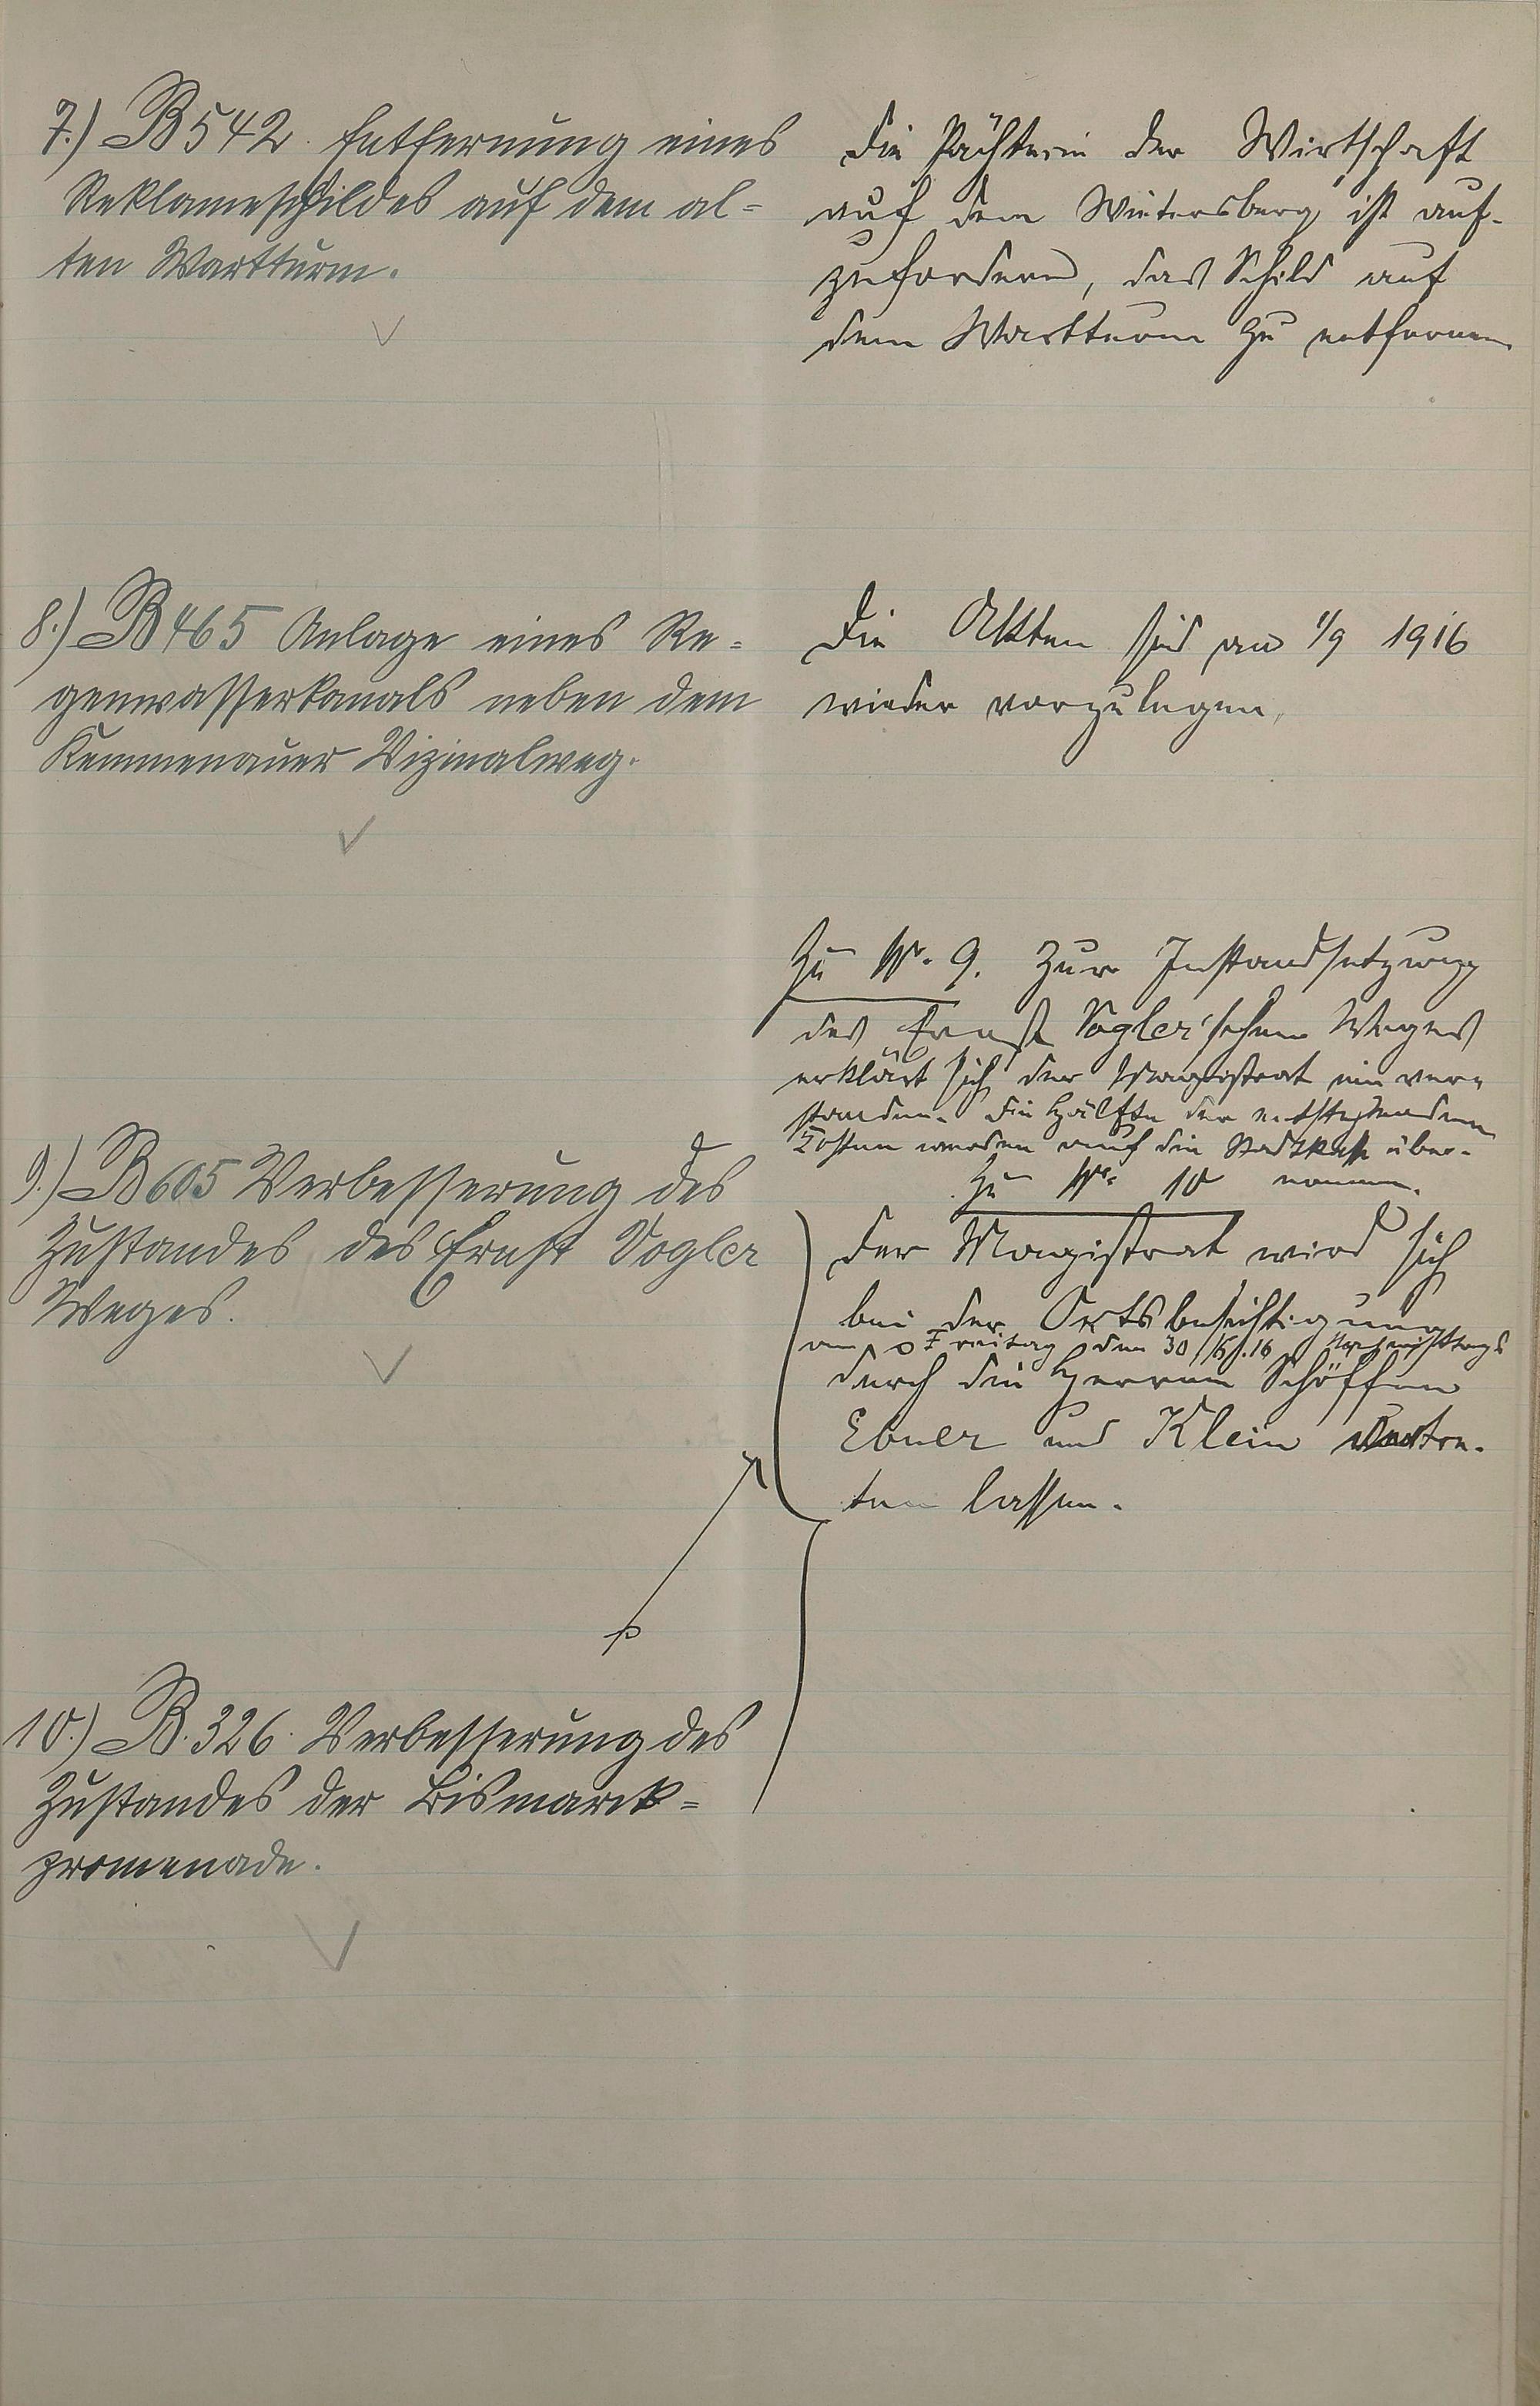 7.) B 542. Entfernung eines
Reklameschildes auf dem al=
ten Wartturm.
Die Pächterin der Wirtschaft
auf dem Wintersberg ist auf-
zufordern, das Schild auf
dem Wartturm zu entfernen
8.) B 465 Anlage eines Re=
genwasserkanals neben dem
Kemmenauer Vizinalweg.
Die Akten sind am 1/9 1916
wieder vorzulegen.
9.) B 605 Verbesserung des
Zustandes des Ernst Vogler
Weges.
Zu Nr. 9. Zur Instandsetzung
des Ernst Vogler'schen Weges
erklärt sich der Magistrat einver-
standen. Die Hälfte der entstehenden
Kosten werden auf die Stadtkasse über-
nommen.
Zu Nr. 10
Der Magistrat wird sich
bei der Ortsbesichtigung
am Freitag den 30/6.16 Nachmittags
durch die Herren Schöffen
Ebner und Klein vertre-
ten lassen.
10.) B. 326. Verbesserung des
Zustandes der Bismarck=
promenade.